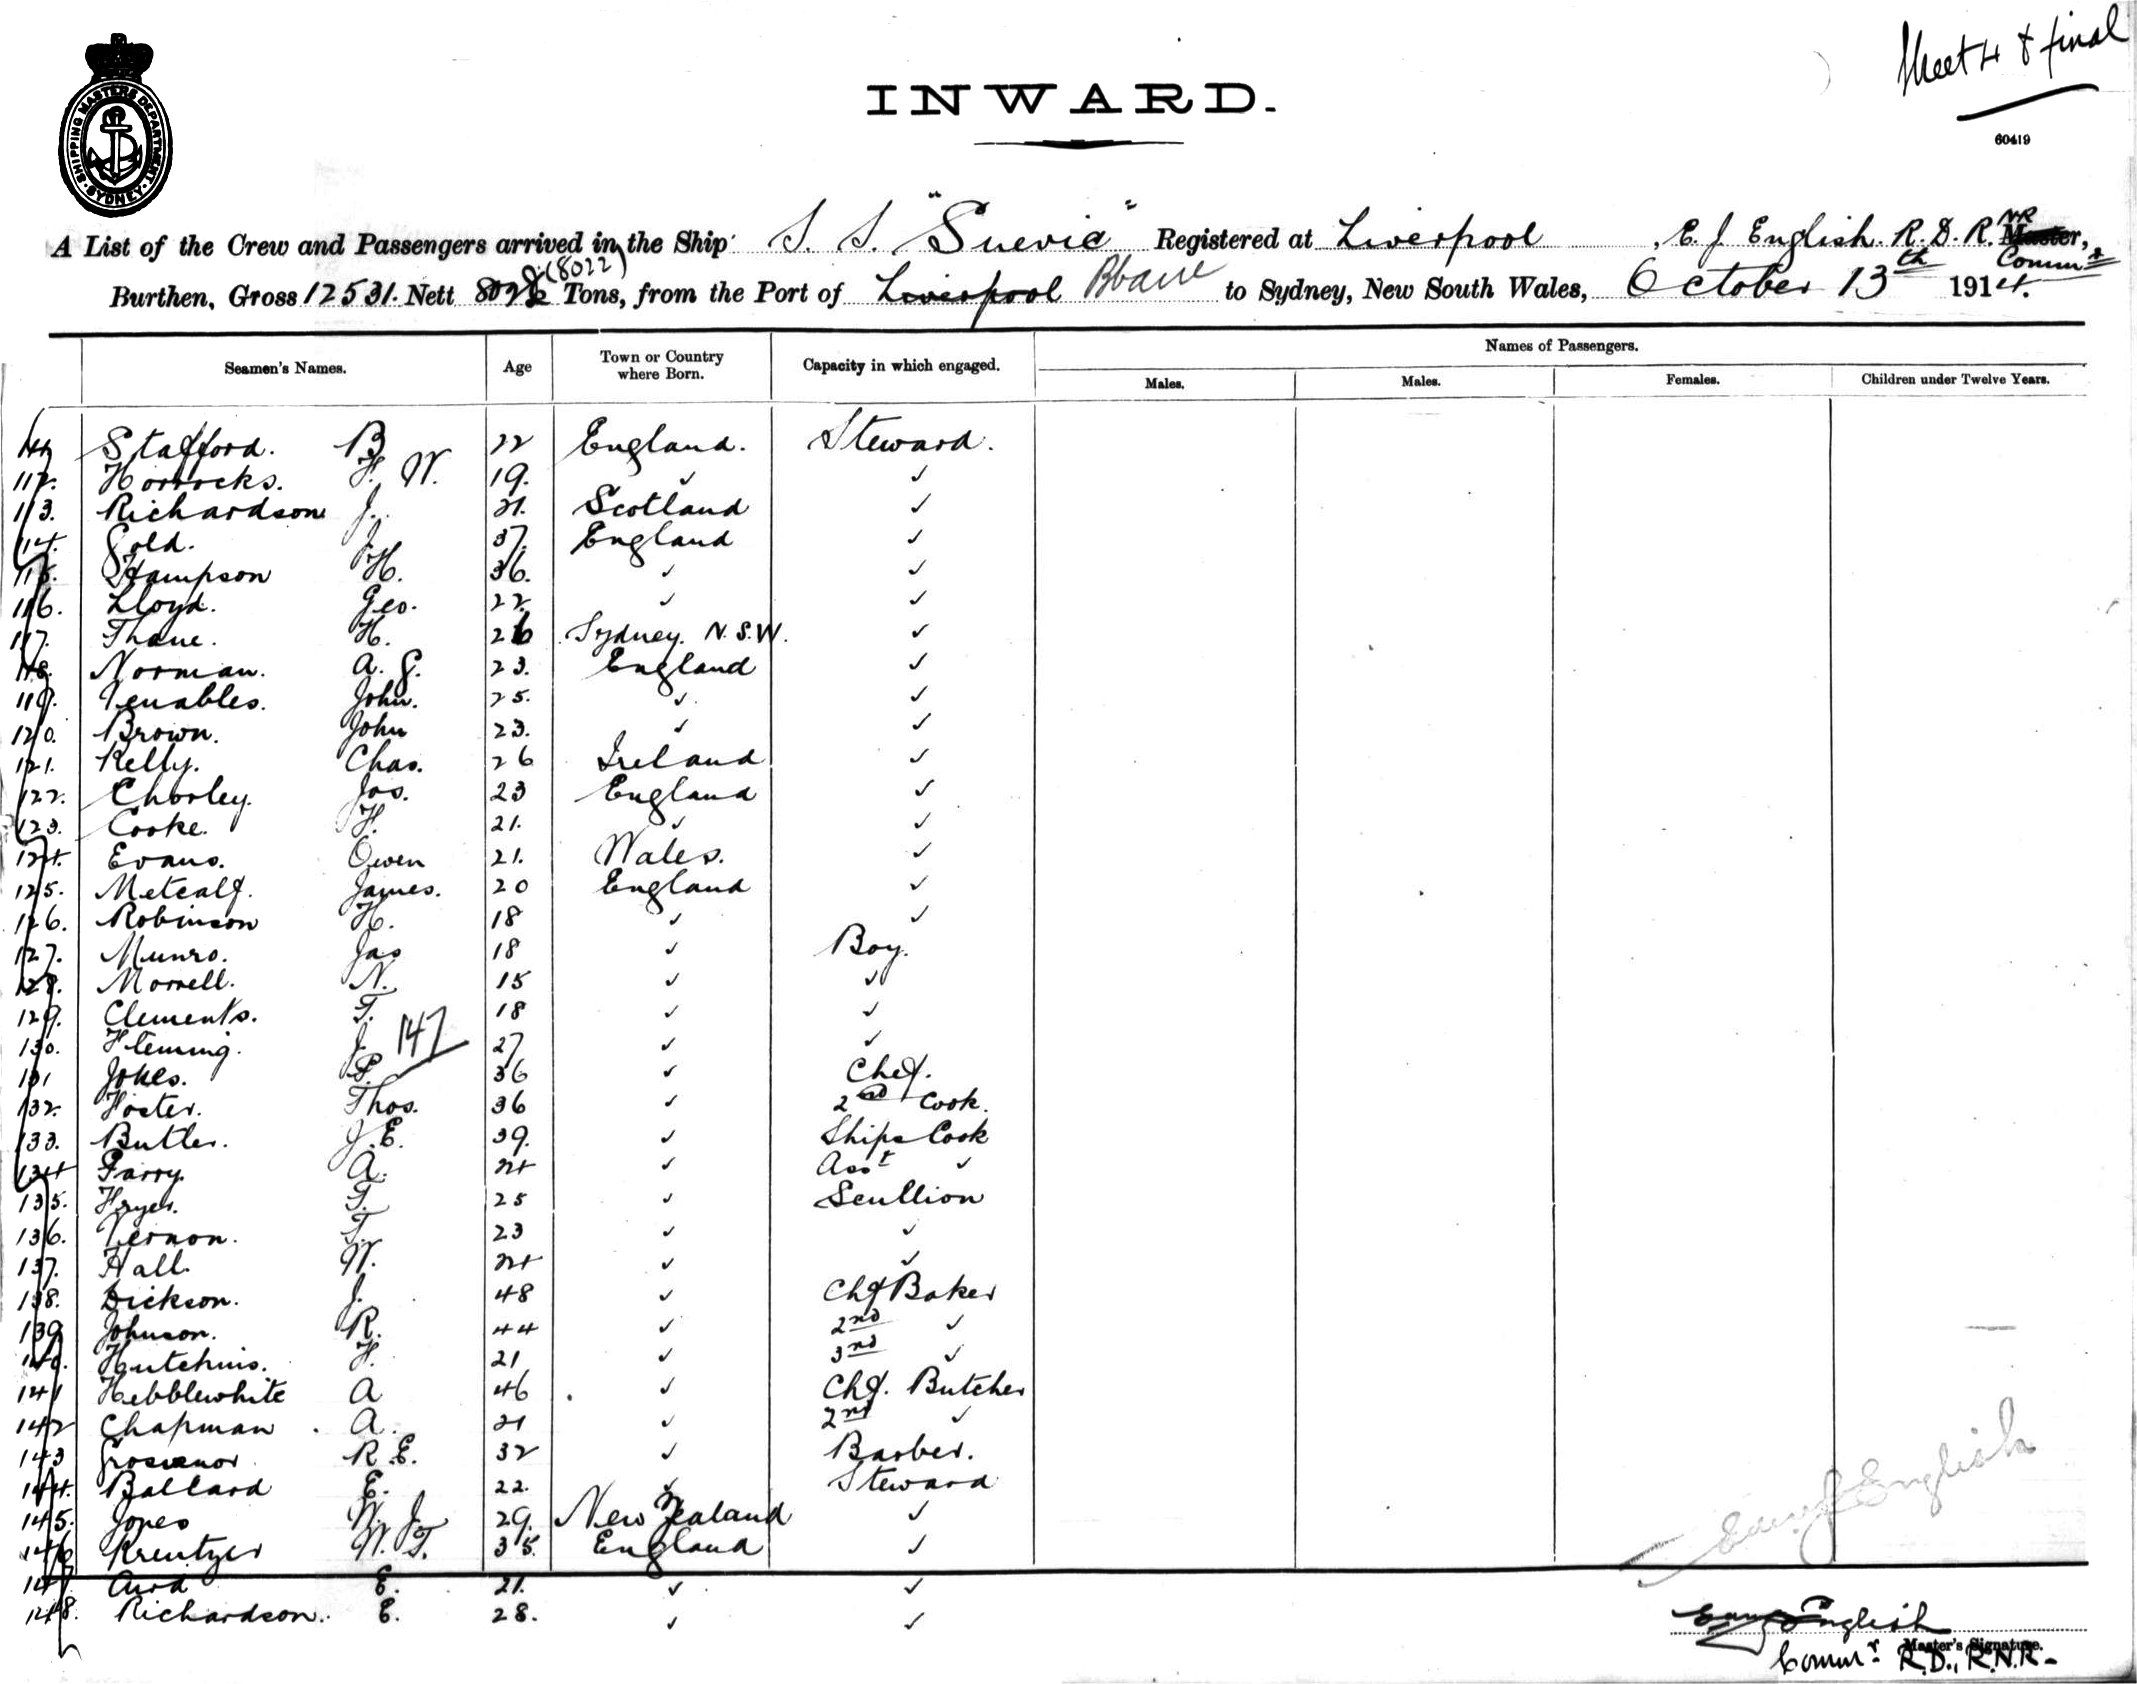 Sheet 4 & final
INWARD.
SHIPPING MASTERS DEPARTMENT
SYDNEY
60419
A List of the Crew and Passengers arrived in the Ship S. S. "Suevic" Registered at Liverpool, E. J. English. R. D. R. NR Master,
Comm r
Burthen, Gross 12531. Nett (8022) Tons, from the Port of Liverpool Bbane to Sydney, New South Wales, October 13th 1914.
Seamen's Names. Age Town or Country where Born. Capacity in which engaged. Names of Passengers.
Males. Males. Females. Children under Twelve Years.
111 Stafford. B 22 England. Steward.
112. Horrocks. F. W. 19. ✓ ✓
113. Richardson J. 21. Scotland ✓
114. Gold. J. 37. England ✓
115. Hampson H. 36. ✓ ✓
116. Lloyd. Geo. 22. ✓ ✓
117. Thane. H. 26 Sydney. N.S.W. ✓
118. Norman. A. G. 23. England ✓
119. Venables. John. 25. ✓ ✓
120. Brown. John 23. ✓ ✓
121. Kelly. Chas. 26 Ireland ✓
122. Chorley. Jos. 23 England ✓
123. Cooke. H. 21. ✓ ✓
124. Evans. Owen 21. Wales. ✓
125. Metcalf. James. 20 England ✓
126. Robinson H. 18 ✓ ✓
127. Munro. Jas 18 ✓ Boy.
128. Morrell. N. 15 ✓ ✓
129. Clements. T. 18 ✓ ✓
130. Fleming. J. 147 27 ✓ ✓
131 Jokes. P. 36 ✓ Chef.
132. Foster. Thos. 36 ✓ 2nd Cook.
133. Butler. J. E. 39. ✓ Ships Cook
134 Parry. A. 24 ✓ Asst ✓
135. Fryer. T. 25 ✓ Scullion
136. Vernon. T. 23 ✓ ✓
137. Hall. W. 24 ✓ ✓
138. Dickson. J. 48 ✓ Chf Baker
139. Johnson. R. 44 ✓ 2nd ✓
140. Hutchins. F. 21 ✓ 3rd ✓
141 Hebblewhite A 46 ✓ Chf. Butcher
142 Chapman. A. 21 ✓ 2nd ✓
143 Grosvenor R. E. 32 ✓ Barber.
144. Ballard E. 22. ✓ Steward
145. Jones W. J. 29. New Zealand ✓
146 Kreutzer W. T. 35. England ✓
147. Aird E. 21. ✓ ✓
148. Richardson. E. 28. ✓ ✓
English
English
Master's Signature.
Comm r R.D., R.N.R.